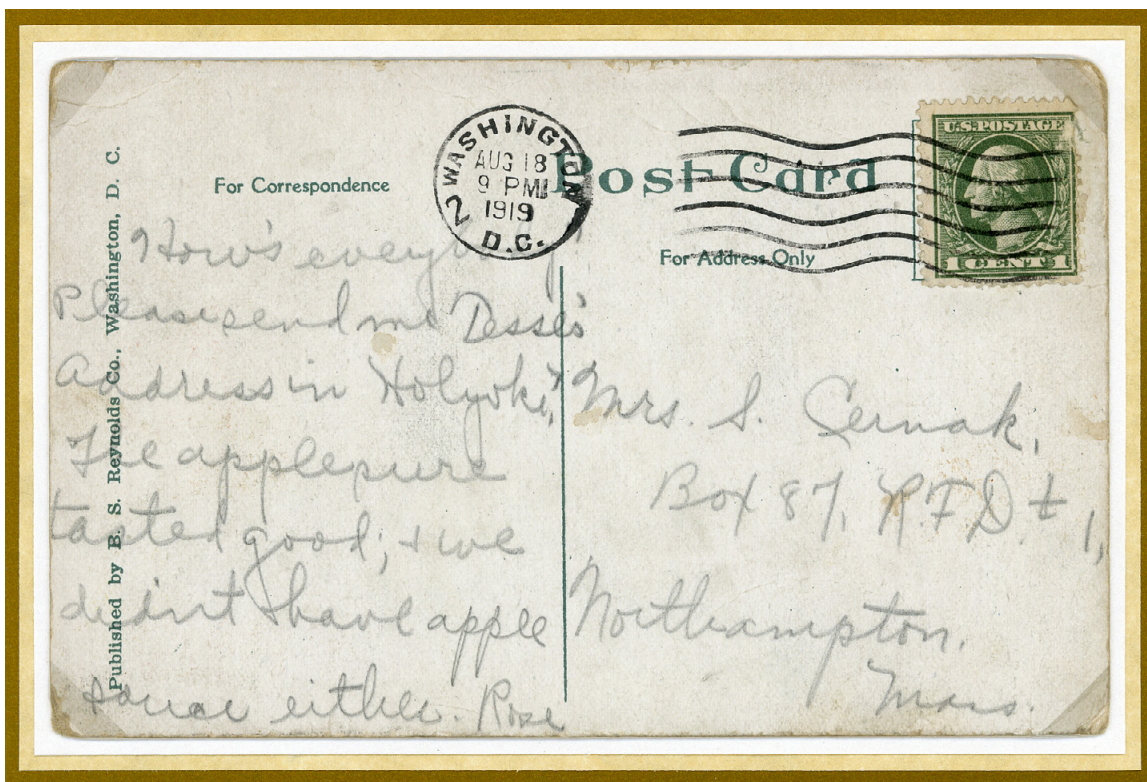 Published by B. S. Reynolds Co., Washington, D. C.
For Correspondence
WASHINGTON
AUG 18
9 PM
1919
2
D.C.
Post Card
For Address Only
U.S. POSTAGE
1 CENT 1
How's everybody?
Please send me Tessie's
Address in Holyoke.
The apple
tasted good, + we
didn't have apple
sauce either. Rose
Mrs. S. Cernak,
Box 87, R.F.D. # 1,
Northampton,
Mass.